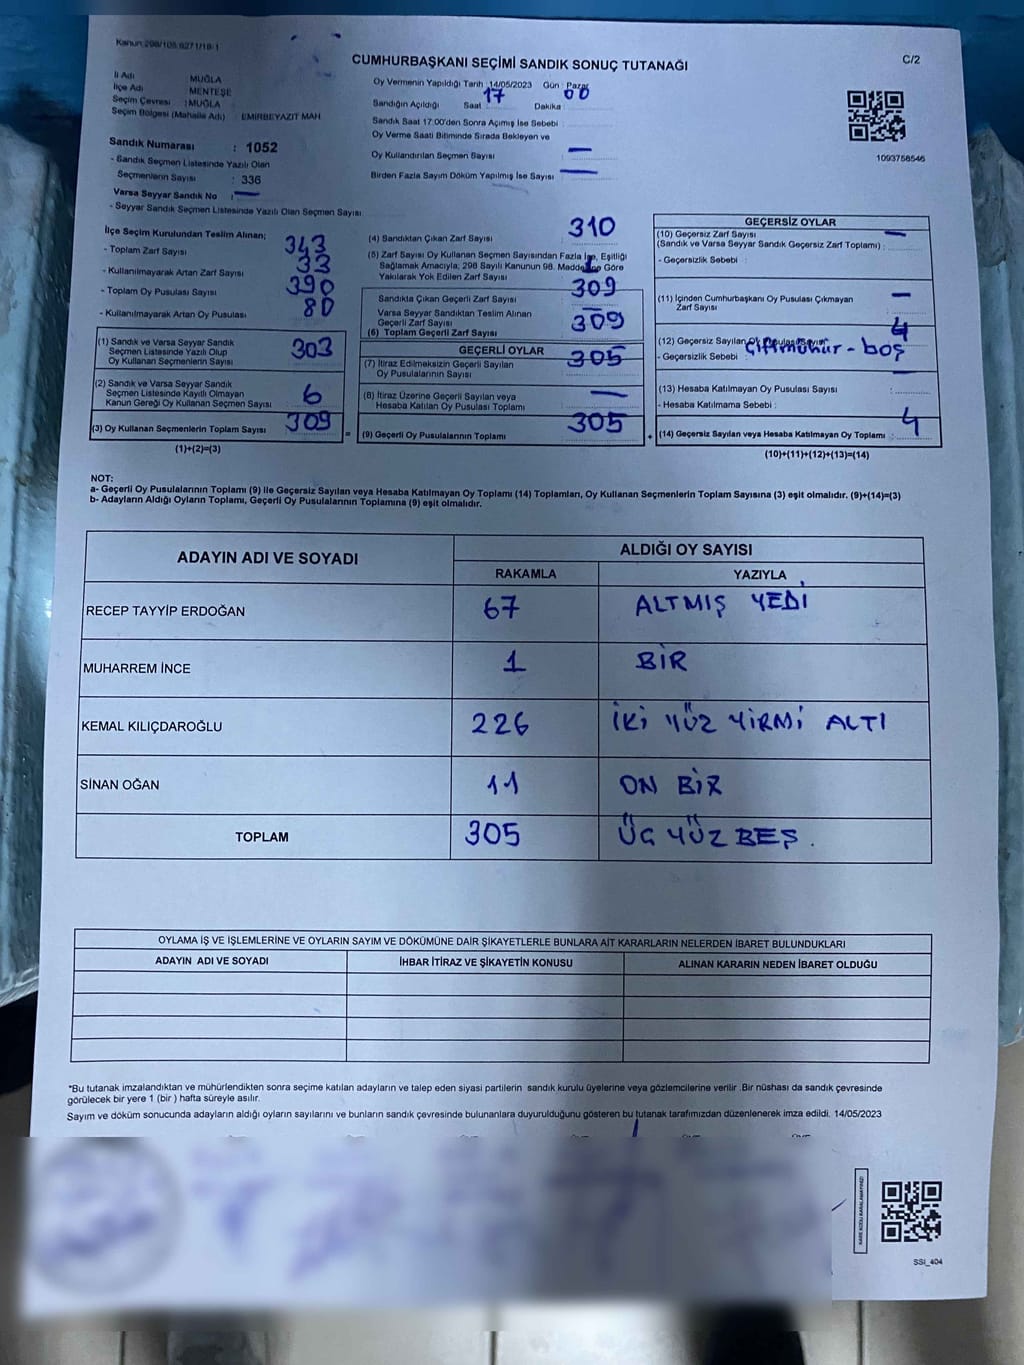 Kanun:298/105.6271/18-1
CUMHURBAŞKANI SEÇİMİ SANDIK SONUÇ TUTANAĞI
C/2
İli Adı MUĞLA
İlçe Adı MENTEŞE
Seçim Çevresi : MUĞLA
Seçim Bölgesi (Mahalle Adı) : EMİRBEYAZIT MAH
Sandık Numarası : 1052
- Sandık Seçmen Listesinde Yazılı Olan
Seçmenlerin Sayısı : 336
Varsa Seyyar Sandık No : —
- Seyyar Sandık Seçmen Listesinde Yazılı Olan Seçmen Sayısı
Oy Vermenin Yapıldığı Tarih :14/05/2023 Gün : Pazar
Sandığın Açıldığı Saat 17 Dakika 00
Sandık Saat 17:00'den Sonra Açımış İse Sebebi :
Oy Verme Saati Bitiminde Sırada Bekleyen ve
Oy Kullandırılan Seçmen Sayısı : —
Birden Fazla Sayım Döküm Yapılmış İse Sayısı : —
1093758546
İlçe Seçim Kurulundan Teslim Alınan;
- Toplam Zarf Sayısı 343
- Kullanılmayarak Artan Zarf Sayısı 33
- Toplam Oy Pusulası Sayısı 390
- Kullanılmayarak Artan Oy Pusulası 80
(1) Sandık ve Varsa Seyyar Sandık
Seçmen Listesinde Yazılı Olup
Oy Kullanan Seçmenlerin Sayısı 303
(2) Sandık ve Varsa Seyyar Sandık
Seçmen Listesinde Kayıtlı Olmayan
Kanun Gereği Oy Kullanan Seçmen Sayısı 6
(3) Oy Kullanan Seçmenlerin Toplam Sayısı 309
(1)+(2)=(3)
(4) Sandıktan Çıkan Zarf Sayısı 310
(5) Zarf Sayısı Oy Kullanan Seçmen Sayısından Fazla İse, Eşitliği
Sağlamak Amacıyla; 298 Sayılı Kanunun 98. Maddesine Göre
Yakılarak Yok Edilen Zarf Sayısı 1
Sandıkta Çıkan Geçerli Zarf Sayısı 309
Varsa Seyyar Sandıktan Teslim Alınan
Geçerli Zarf Sayısı
(6) Toplam Geçerli Zarf Sayısı 309
GEÇERLİ OYLAR
(7) İtiraz Edilmeksizin Geçerli Sayılan
Oy Pusulalarının Sayısı 305
(8) İtiraz Üzerine Geçerli Sayılan veya
Hesaba Katılan Oy Pusulası Toplamı —
= (9) Geçerli Oy Pusulalarının Toplamı 305
GEÇERSİZ OYLAR
(10) Geçersiz Zarf Sayısı —
(Sandık ve Varsa Seyyar Sandık Geçersiz Zarf Toplamı) :
- Geçersizlik Sebebi :
(11) İçinden Cumhurbaşkanı Oy Pusulası Çıkmayan
Zarf Sayısı —
(12) Geçersiz Sayılan Oy Pusulası Sayısı 4
- Geçersizlik Sebebi : Çiftmühür - boş
(13) Hesaba Katılmayan Oy Pusulası Sayısı : —
- Hesaba Katılmama Sebebi :
+ (14) Geçersiz Sayılan veya Hesaba Katılmayan Oy Toplamı : 4
(10)+(11)+(12)+(13)=(14)
NOT:
a- Geçerli Oy Pusulalarının Toplamı (9) ile Geçersiz Sayılan veya Hesaba Katılmayan Oy Toplamı (14) Toplamları, Oy Kullanan Seçmenlerin Toplam Sayısına (3) eşit olmalıdır. (9)+(14)=(3)
b- Adayların Aldığı Oyların Toplamı, Geçerli Oy Pusulalarının Toplamına (9) eşit olmalıdır.
ADAYIN ADI VE SOYADI
ALDIĞI OY SAYISI
RAKAMLA YAZIYLA
RECEP TAYYİP ERDOĞAN 67 ALTMIŞ YEDİ
MUHARREM İNCE 1 BİR
KEMAL KILIÇDAROĞLU 226 İKİ YÜZ YİRMİ ALTI
SİNAN OĞAN 11 ON BİR
TOPLAM 305 ÜÇ YÜZ BEŞ.
OYLAMA İŞ VE İŞLEMLERİNE VE OYLARIN SAYIM VE DÖKÜMÜNE DAİR ŞİKAYETLERLE BUNLARA AİT KARARLARIN NELERDEN İBARET BULUNDUKLARI
ADAYIN ADI VE SOYADI İHBAR İTİRAZ VE ŞİKAYETİN KONUSU ALINAN KARARIN NEDEN İBARET OLDUĞU
*Bu tutanak imzalandıktan ve mühürlendikten sonra seçime katılan adayların ve talep eden siyasi partilerin sandık kurulu üyelerine veya gözlemcilerine verilir .Bir nüshası da sandık çevresinde
görülecek bir yere 1 (bir ) hafta süreyle asılır.
Sayım ve döküm sonucunda adayların aldığı oyların sayılarını ve bunların sandık çevresinde bulunanlara duyurulduğunu gösteren bu tutanak tarafımızdan düzenlenerek imza edildi. 14/05/2023
KARE KODU KARALAMAYINIZ!
SSI_404